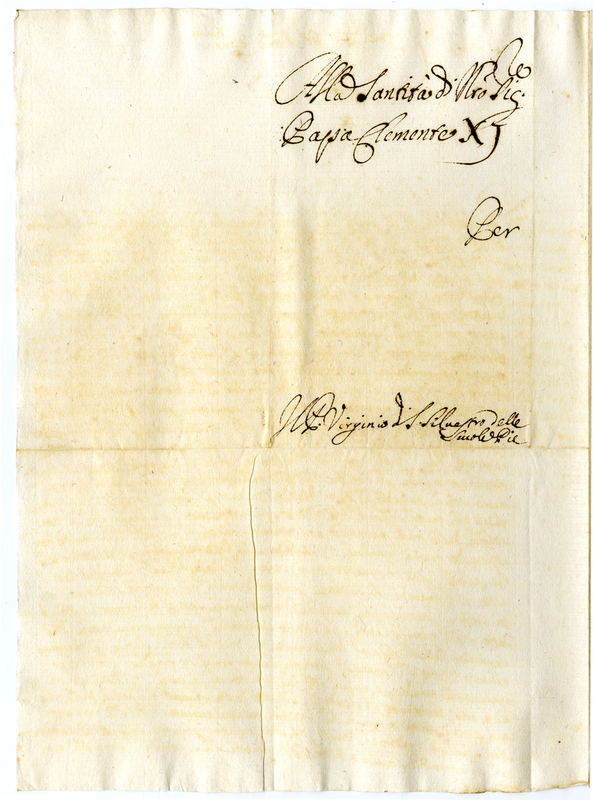 Alla Santità di Nrõ Sigre
Papa Clemente XJ
Per
Il P. Virginio di S. Siluestro delle
Scuole Pie